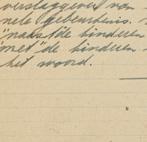 verslaggever van
nele gebeurtenis.
"naast de kinderen
met "de kinderen
het woord.